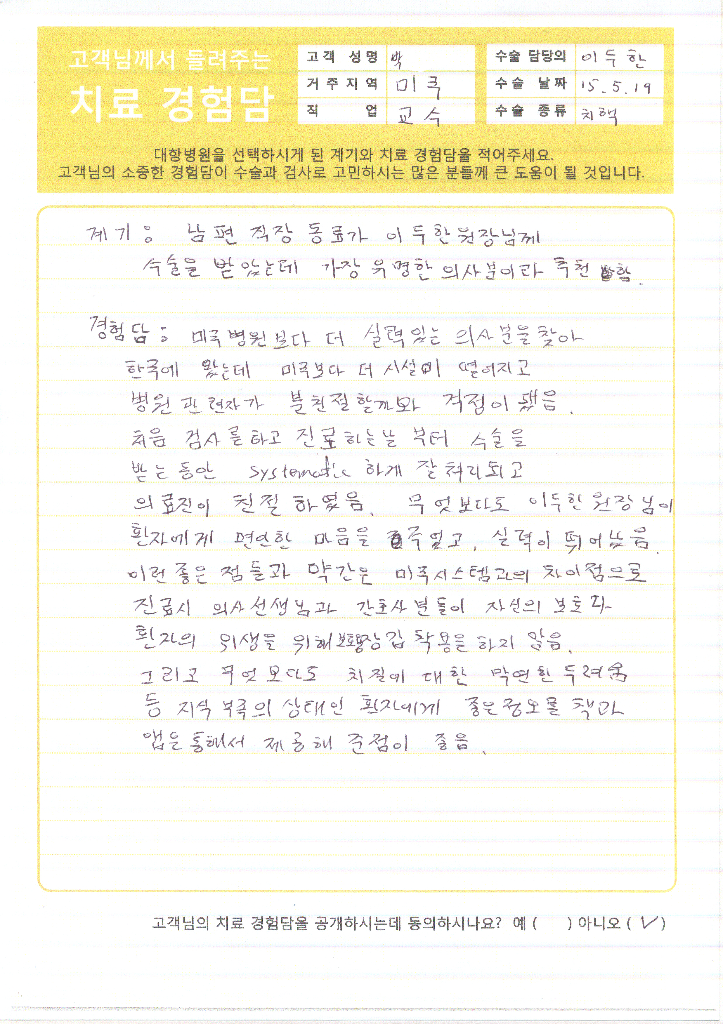 고객님께서 들려주는
치료 경험담
고객 성명 박
거주지역 미국
직 업 교수
수술 담당의 이두한
수술 날짜 15.5.19
수술 종류 치핵
대항병원을 선택하시게 된 계기와 치료 경험담을 적어주세요.
고객님의 소중한 경험담이 수술과 검사로 고민하시는 많은 분들께 큰 도움이 될 것입니다.
계기 : 남편 직장 동료가 이두한원장님께
수술을 받았는데 가장 유명한 의사분이라 추천 함.
경험담 : 미국병원보다 더 실력있는 의사분을 찾아
한국에 왔는데 미국보다 더 시설이 떨어지고
병원 관련자가 불친절할까봐 걱정이 됐음.
처음 검사를 하고 진료하는날 부터 수술을
받는 동안 systematic 하게 잘 처리되고
의료진이 친절 하였음. 무엇보다도 이두한 원장님이
환자에게 편안한 마음을 주었고, 실력이 뛰어났음.
이런 좋은 점들과 약간은 미국시스템과의 차이점으로
진료시 의사선생님과 간호사분들이 자신의 보호와
환자의 위생을 위해 장갑 착용을 하지 않음.
그리고 무엇보다도 치질에 대한 막연한 두려움
등 지식 부족의 상태인 환자에게 좋은정보를 책과
앱을통해서 제공해 준점이 좋음.
고객님의 치료 경험담을 공개하시는데 동의하시나요? 예 ( ) 아니오 ( ✓ )